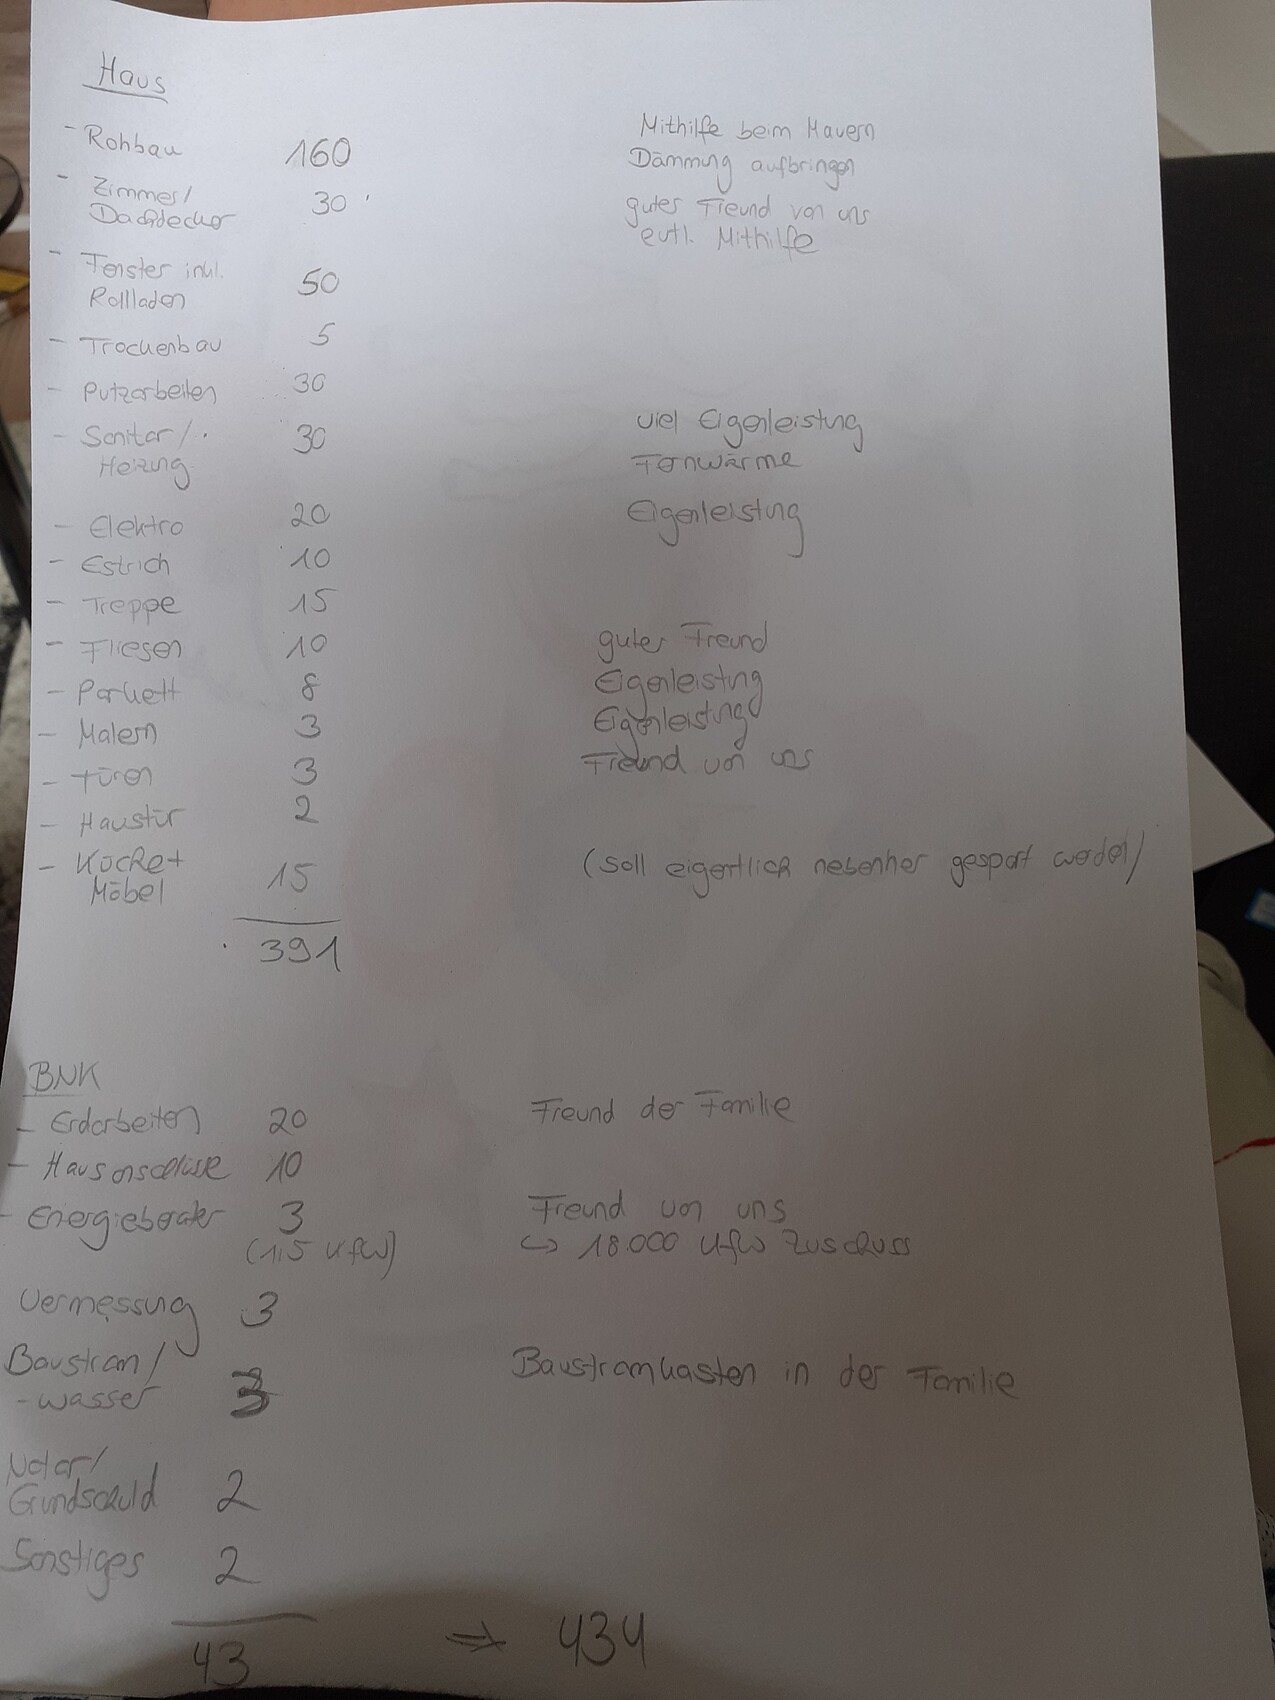 Haus
- Rohbau 160 Mithilfe beim Mauern
Dämmung aufbringen
- Zimmer/ 30 gutes Freund von uns
Dachdecker evtl. Mithilfe
- Fenster inkl. 50
Rollladen
- Trockenbau 5
- Putzarbeiten 30
- Sanitär/ 30 viel Eigenleistung
Heizung Fernwärme
- Elektro 20 Eigenleistung
- Estrich 10
- Treppe 15
- Fliesen 10 guter Freund
- Parkett 8 Eigenleistung
- Malern 3 Eigenleistung
- Türen 3 Freund von uns
- Haustür 2
- Küche + 15 (soll eigentlich nebenher gespart werden)
Möbel
391
BNK
- Erdarbeiten 20 Freund der Familie
- Hausanschlüsse 10
- Energieberater 3 Freund von uns
(1,5 KfW) ↳ 18.000 KfW Zuschuss
Vermessung 3
Baustrom/ 3 Baustromkasten in der Familie
-wasser
Notar/ 2
Grundschuld
Sonstiges 2
43 ⇒ 434